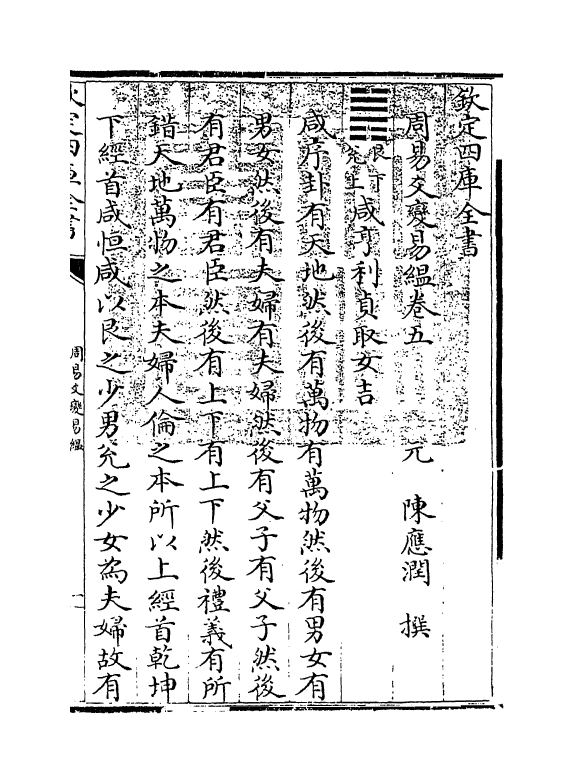 欽定四庫全書
周易爻變易縕卷五　元　陳應潤　撰
艮下兌上　咸亨利貞取女吉
咸序卦有天地然後有萬物有萬物然後有男女有
男女然後有夫婦有夫婦然後有父子有父子然後
有君臣有君臣然後有上下有上下然後禮義有所
錯天地萬物之本夫婦人倫之本所以上經首乾坤
下經首咸恒咸以艮之少男兌之少女為夫婦故有
欽定四庫全書
周易爻變易縕